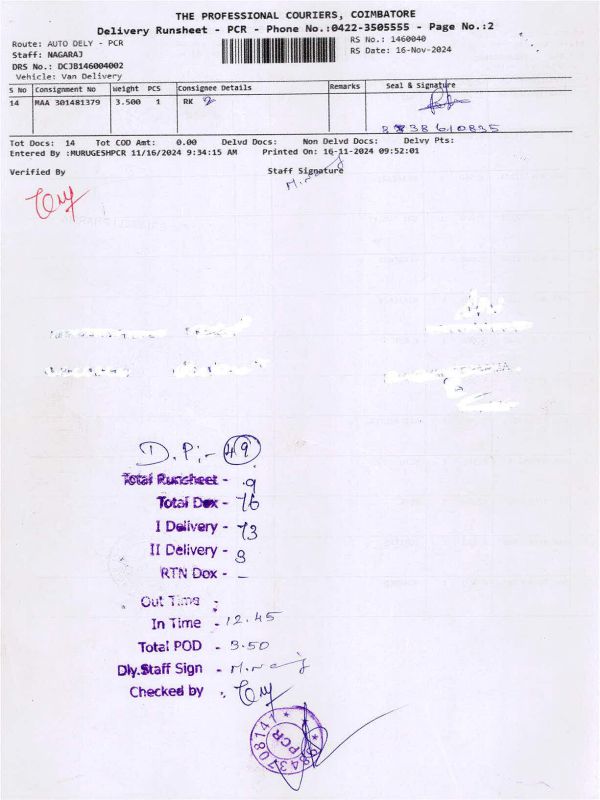 THE PROFESSIONAL COURIERS, COIMBATORE
Delivery Runsheet - PCR - Phone No.:0422-3505555 - Page No.:2
Route: AUTO DELY - PCR
RS No.: 1460040
Staff: NAGARAJ
RS Date: 16-Nov-2024
DRS No.: DCJB146004002
Vehicle: Van Delivery
S No Consignment No Weight PCS Consignee Details Remarks Seal & Signature
14 MAA 301481379 3.500 1 RK
Tot Docs: 14 Tot COD Amt: 0.00 Delvd Docs: Non Delvd Docs: Delvy Pts:
Entered By :MURUGESHPCR 11/16/2024 9:34:15 AM Printed On: 16-11-2024 09:52:01
Verified By Staff Signature
D.P:- 49
Total Runsheet - 9
Total Dox - 76
I Delivery - 73
II Delivery - 3
RTN Dox - –
Out Time :
In Time - 12.45
Total POD - 3.50
Dly.Staff Sign -
Checked by -
PCR